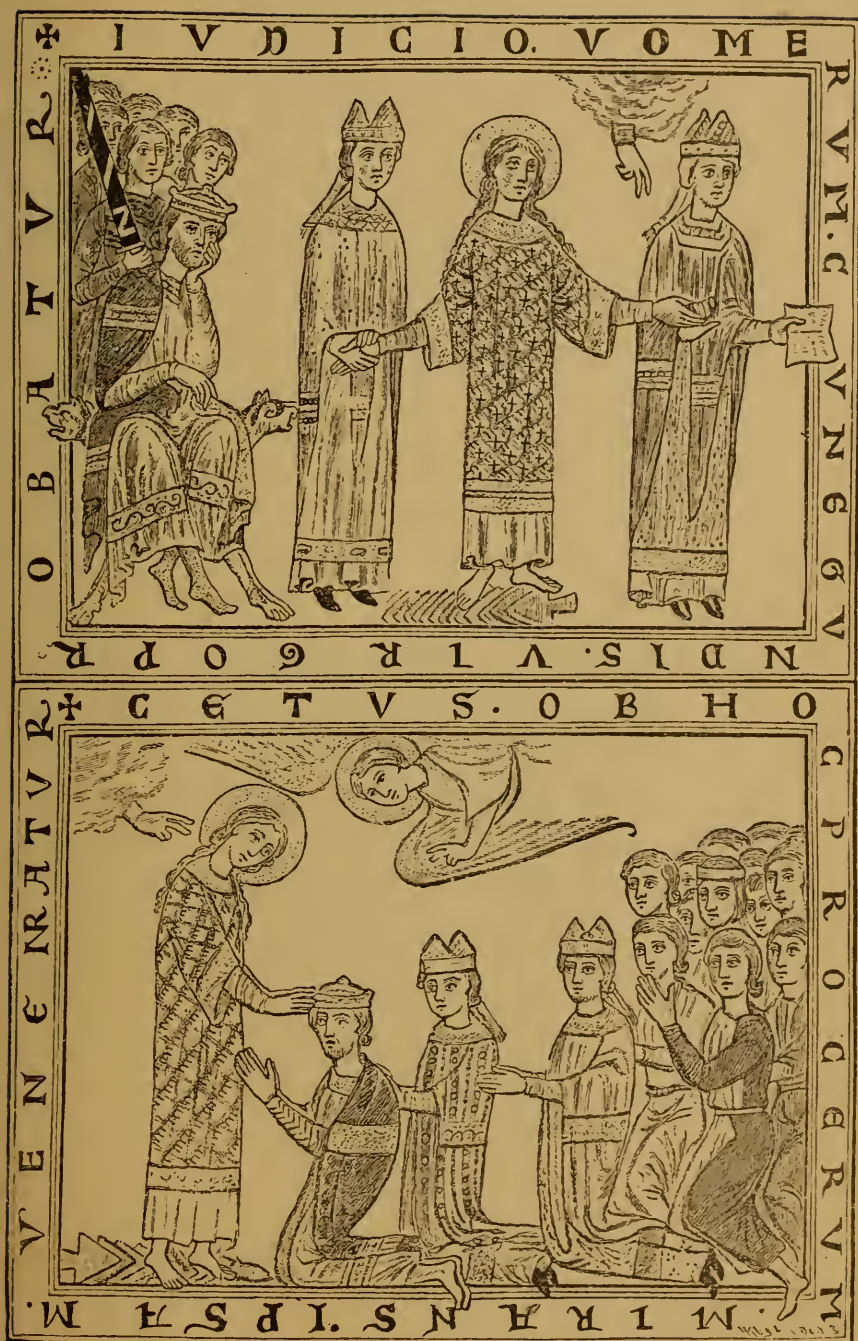 ✠ IVDICIO. VOME
RVM. CVNEGV
NDIS. VIRGO PR
OBATVR
N
✠ CETVS. OB HO
C PROCERVM
. MIRANS. IPSAM.
VENENRATVR